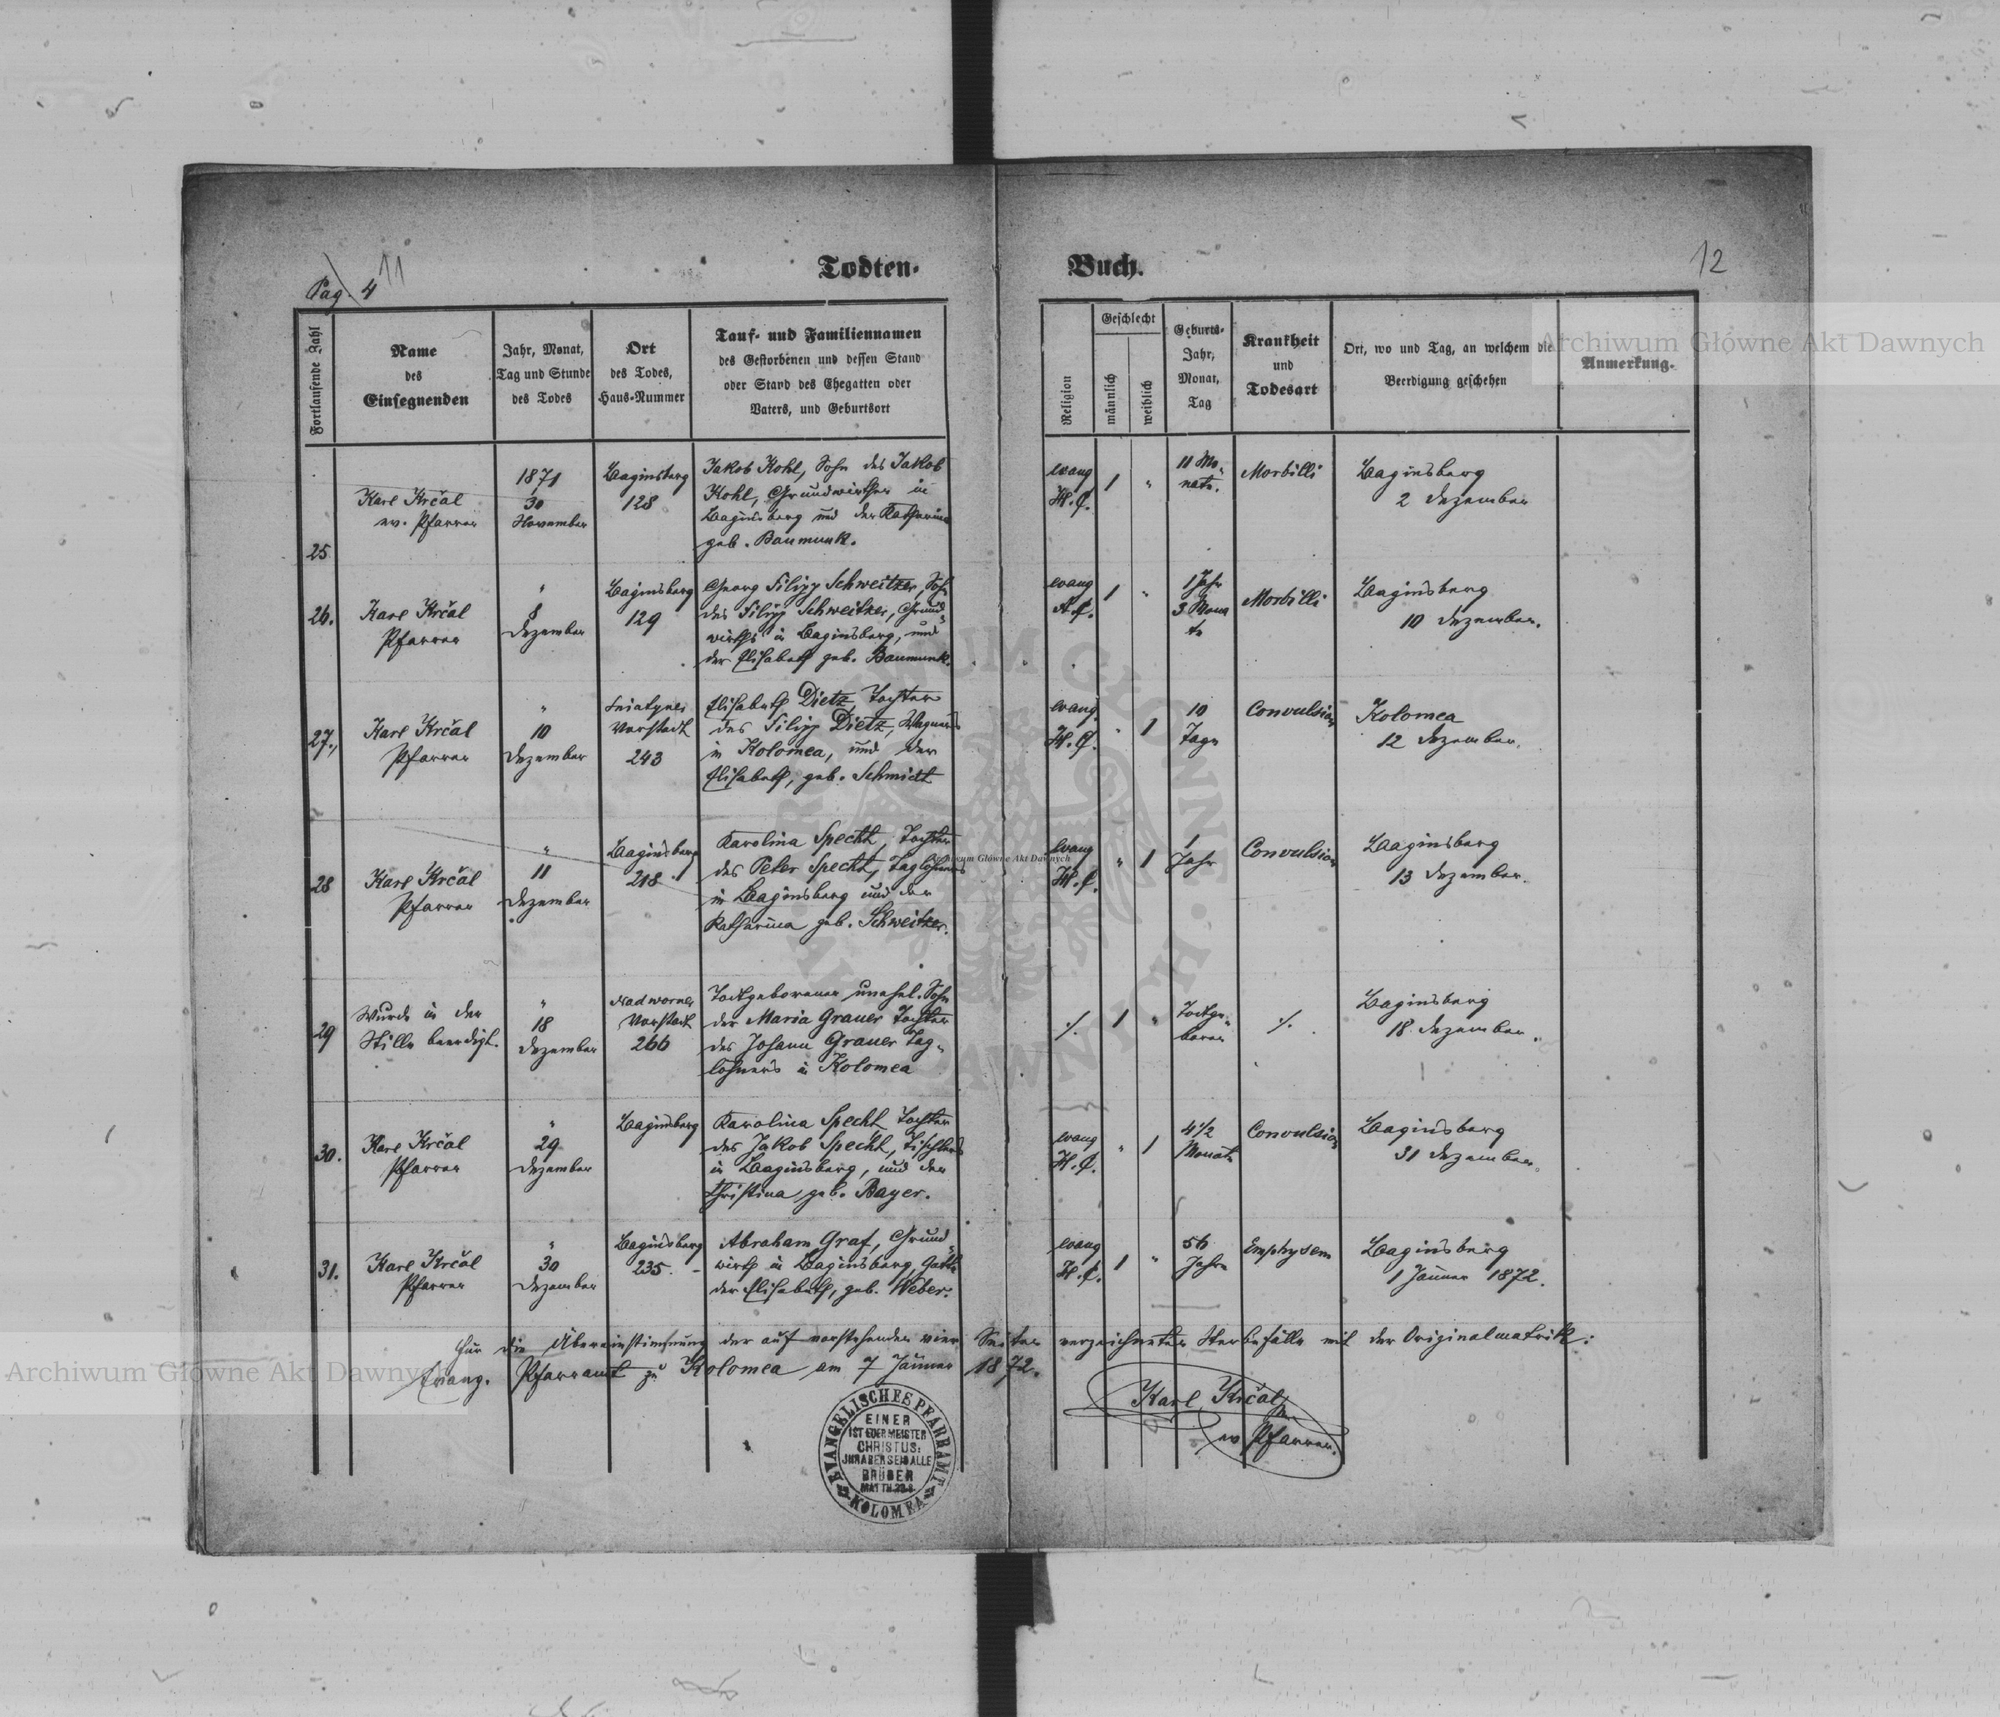 Pag. 4
11
Todten-
Buch.
12
Fortlaufende Zahl
Name
des
Einsegnenden
Jahr, Monat,
Tag und Stunde
des Todes
Ort
des Todes,
Haus-Nummer
Tauf- und Familiennamen
des Gestorbenen und dessen Stand
oder Stand des Ehegatten oder
Vaters, und Geburtsort
Religion
Geschlecht
männlich
weiblich
Geburts-
Jahr,
Monat,
Tag
Krankheit
und
Todesart
Ort, wo und Tag, an welchem die
Beerdigung geschehen
Anmerkung.
25
Karl Krčal
ev. Pfarrer
1871
30
November
Baginsberg
128
Jakob Kohl, Sohn des Jakob
Kohl, Grundwirthes in
Baginsberg und der Katharina
geb. Baumunk.
evang
H.C.
1
"
11 Mo-
nate.
Morbilli
Baginsberg
2 Dezember
26.
Karl Krčal
Pfarrer
"
8
Dezember
Baginsberg
129
Georg Filipp Schweitzer, Sohn
des Filipp Schweitzer, Grund-
wirths in Baginsberg, und
der Elisabeth geb. Baumunk.
evang
A.C.
1
"
1 Jahr
3 Mona
te
Morbilli
Baginsberg
10 Dezember.
27.
Karl Krčal
Pfarrer
"
10
Dezember
Sniatyner
Vorstadt
243
Elisabeth Dietz, Tochter
des Filipp Dietz, Wagners
in Kolomea, und der
Elisabeth, geb. Schmidt
evang.
H.C.
"
1
10
Tage
Convulsion
Kolomea
12 Dezember.
28
Karl Krčal
Pfarrer
"
11
Dezember
Baginsberg
218
Karolina Specht, Tochter
des Peter Specht, Taglöhners
in Baginsberg und der
Katharina geb. Schweitzer.
Evang
H.C.
"
1
1
Jahr
Convulsion
Baginsberg
13 Dezember.
29
Wurde in der
Stille beerdigt.
"
18
Dezember
Nadworner
Vorstadt
266
Todtgeborener unehel. Sohn
der Maria Grauer Tochter
des Johann Grauer Tag-
löhners in Kolomea
./.
1
"
Todtge-
boren
./.
Baginsberg
18 Dezember.
30.
Karl Krčal
Pfarrer
"
29
Dezember
Baginsberg
Karolina Specht Tochter
des Jakob Specht, Tischlers
in Baginsberg, und der
Christina, geb. Bayer.
evang
H.C.
"
1
4 1/2
Monate
Convulsion
Baginsberg
31 Dezember.
31.
Karl Krčal
Pfarrer
"
30
Dezember
Baginsberg
235.
Abraham Graf, Grund-
wirth in Baginsberg, Gatte
der Elisabeth, geb. Weber.
evang
H.C.
1
"
56
Jahre
Emphysem
Baginsberg
1 Jänner 1872.
Für die Übereinstimmung der auf vorstehenden vier Seiten verzeichneten Sterbefälle mit der Originalmatrik:
Evang. Pfarramt zu Kolomea am 7 Jänner 1872.
Karl Krčal
ev Pfarrer.
EVANGELISCHES PFARRAMT
KOLOMEA
EINER
IST EUER MEISTER
CHRISTUS:
IHR ABER SEID ALLE
BRÜDER
MATTH. 23.8.
Archiwum Główne Akt Dawnych
Archiwum Główne Akt Dawnych
Archiwum Główne Akt Dawnych